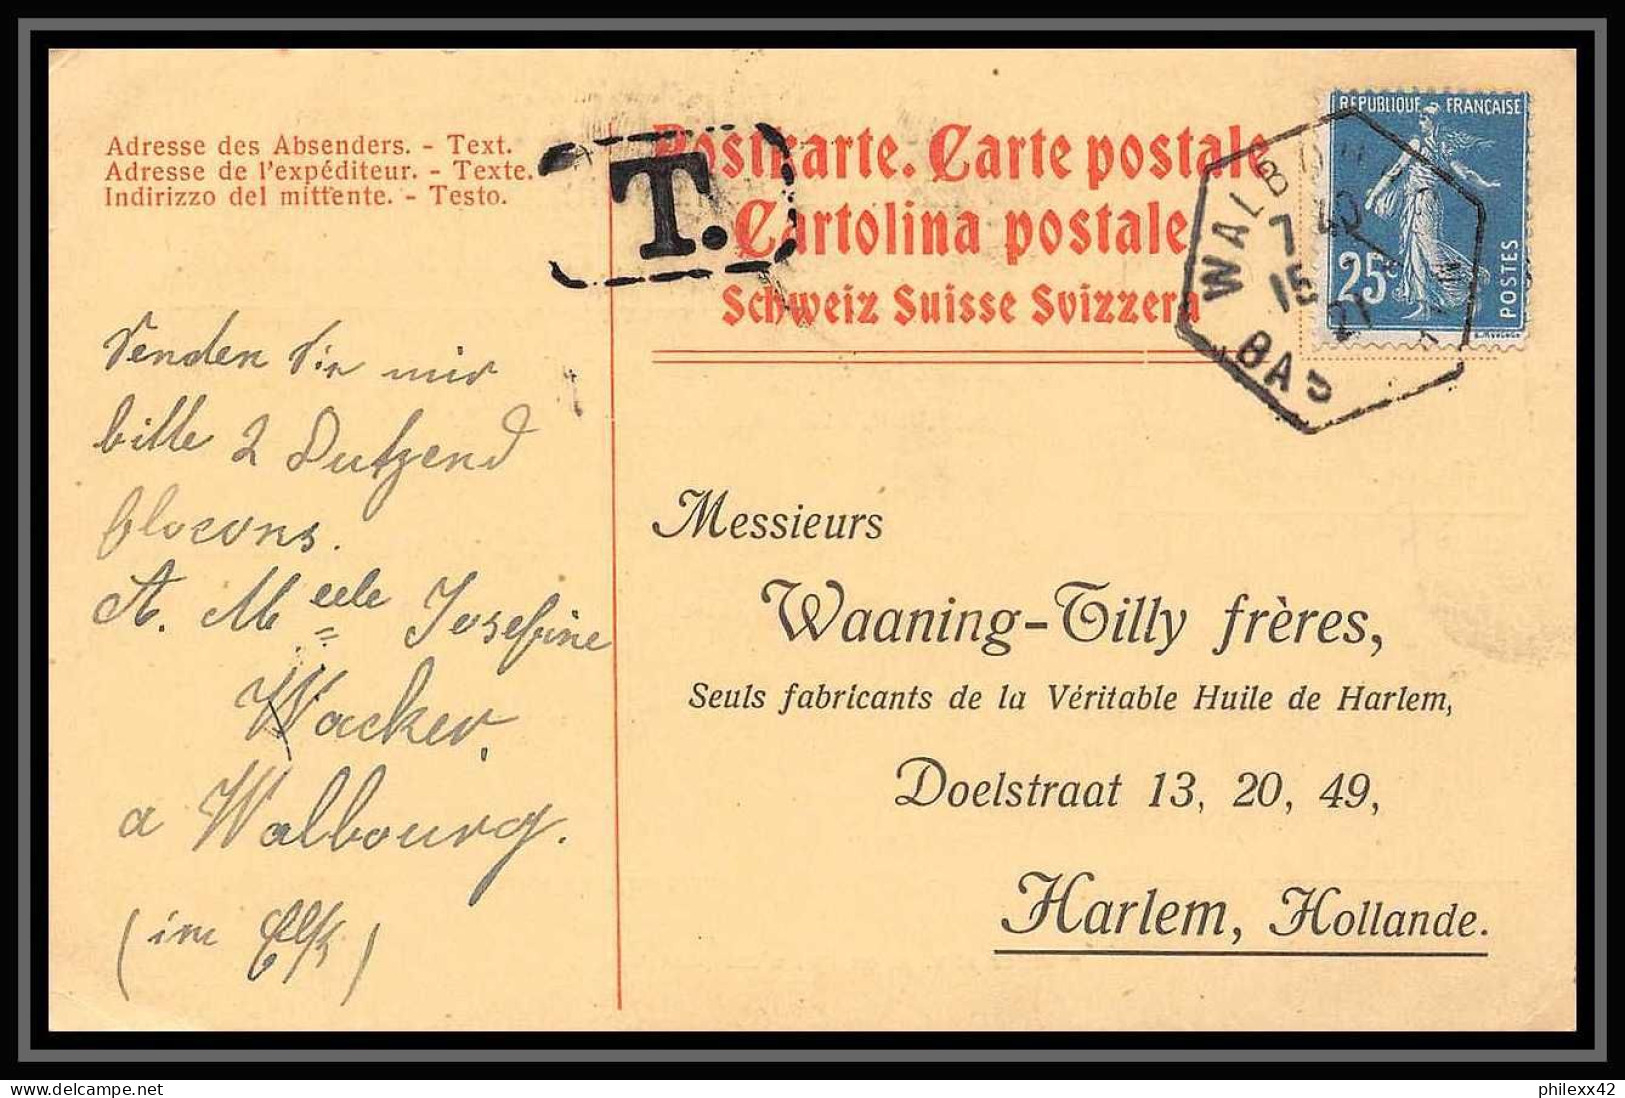 Adresse des Absenders. - Text.
Adresse de l'expéditeur. - Texte.
Indirizzo del mittente. - Testo.
T.
Postkarte. Carte postale
Cartolina postale
Schweiz Suisse Svizzera
REPUBLIQUE FRANÇAISE
25c
POSTES
WALBOURG
7 40
15
21
BAS
Senden Sie mir
bitte 2 Dutzend
flocons.
A. Melle Josefine
Wacker,
a Walbourg.
(im Elsß)
Messieurs
Waaning-Tilly frères,
Seuls fabricants de la Véritable Huile de Harlem,
Doelstraat 13, 20, 49,
Harlem, Hollande.
philexx42